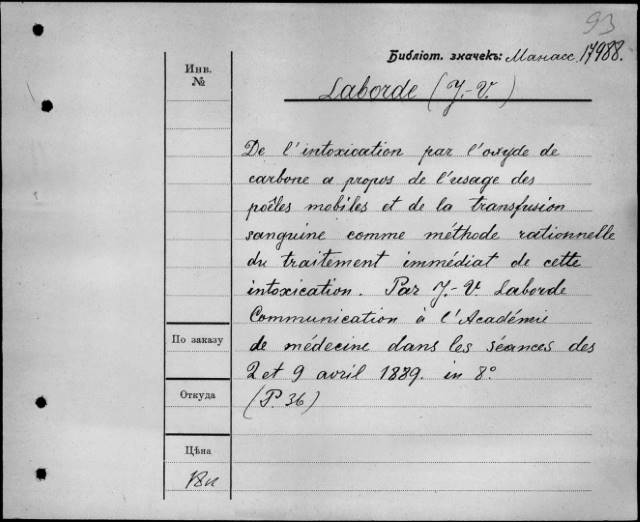 93
Библіот. значекъ: Манасс. 17988.
Инв.
№
Laborde (J.-V.)
De l'intoxication par l'oxyde de
carbone a propos de l'usage des
poêles mobiles et de la transfusion
sanguine comme méthode rationnelle
du traitement immédiat de cette
intoxication. Par J.-V. Laborde
Communication à l'Académie
de médecine dans les séances des
2 et 9 avril 1889. in 8°
(P. 36)
По заказу
Откуда
Цѣна